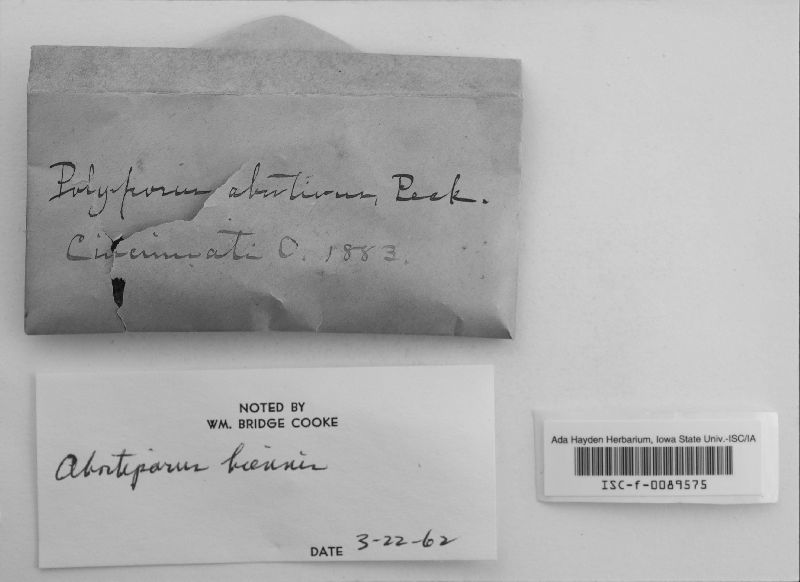 Polyporus abortivus, Peck.
Cincinnati O. 1883.
NOTED BY
WM. BRIDGE COOKE
Abortiporus biennis
DATE 3-22-62
Ada Hayden Herbarium, Iowa State Univ.-ISC/IA
ISC-f-0089575